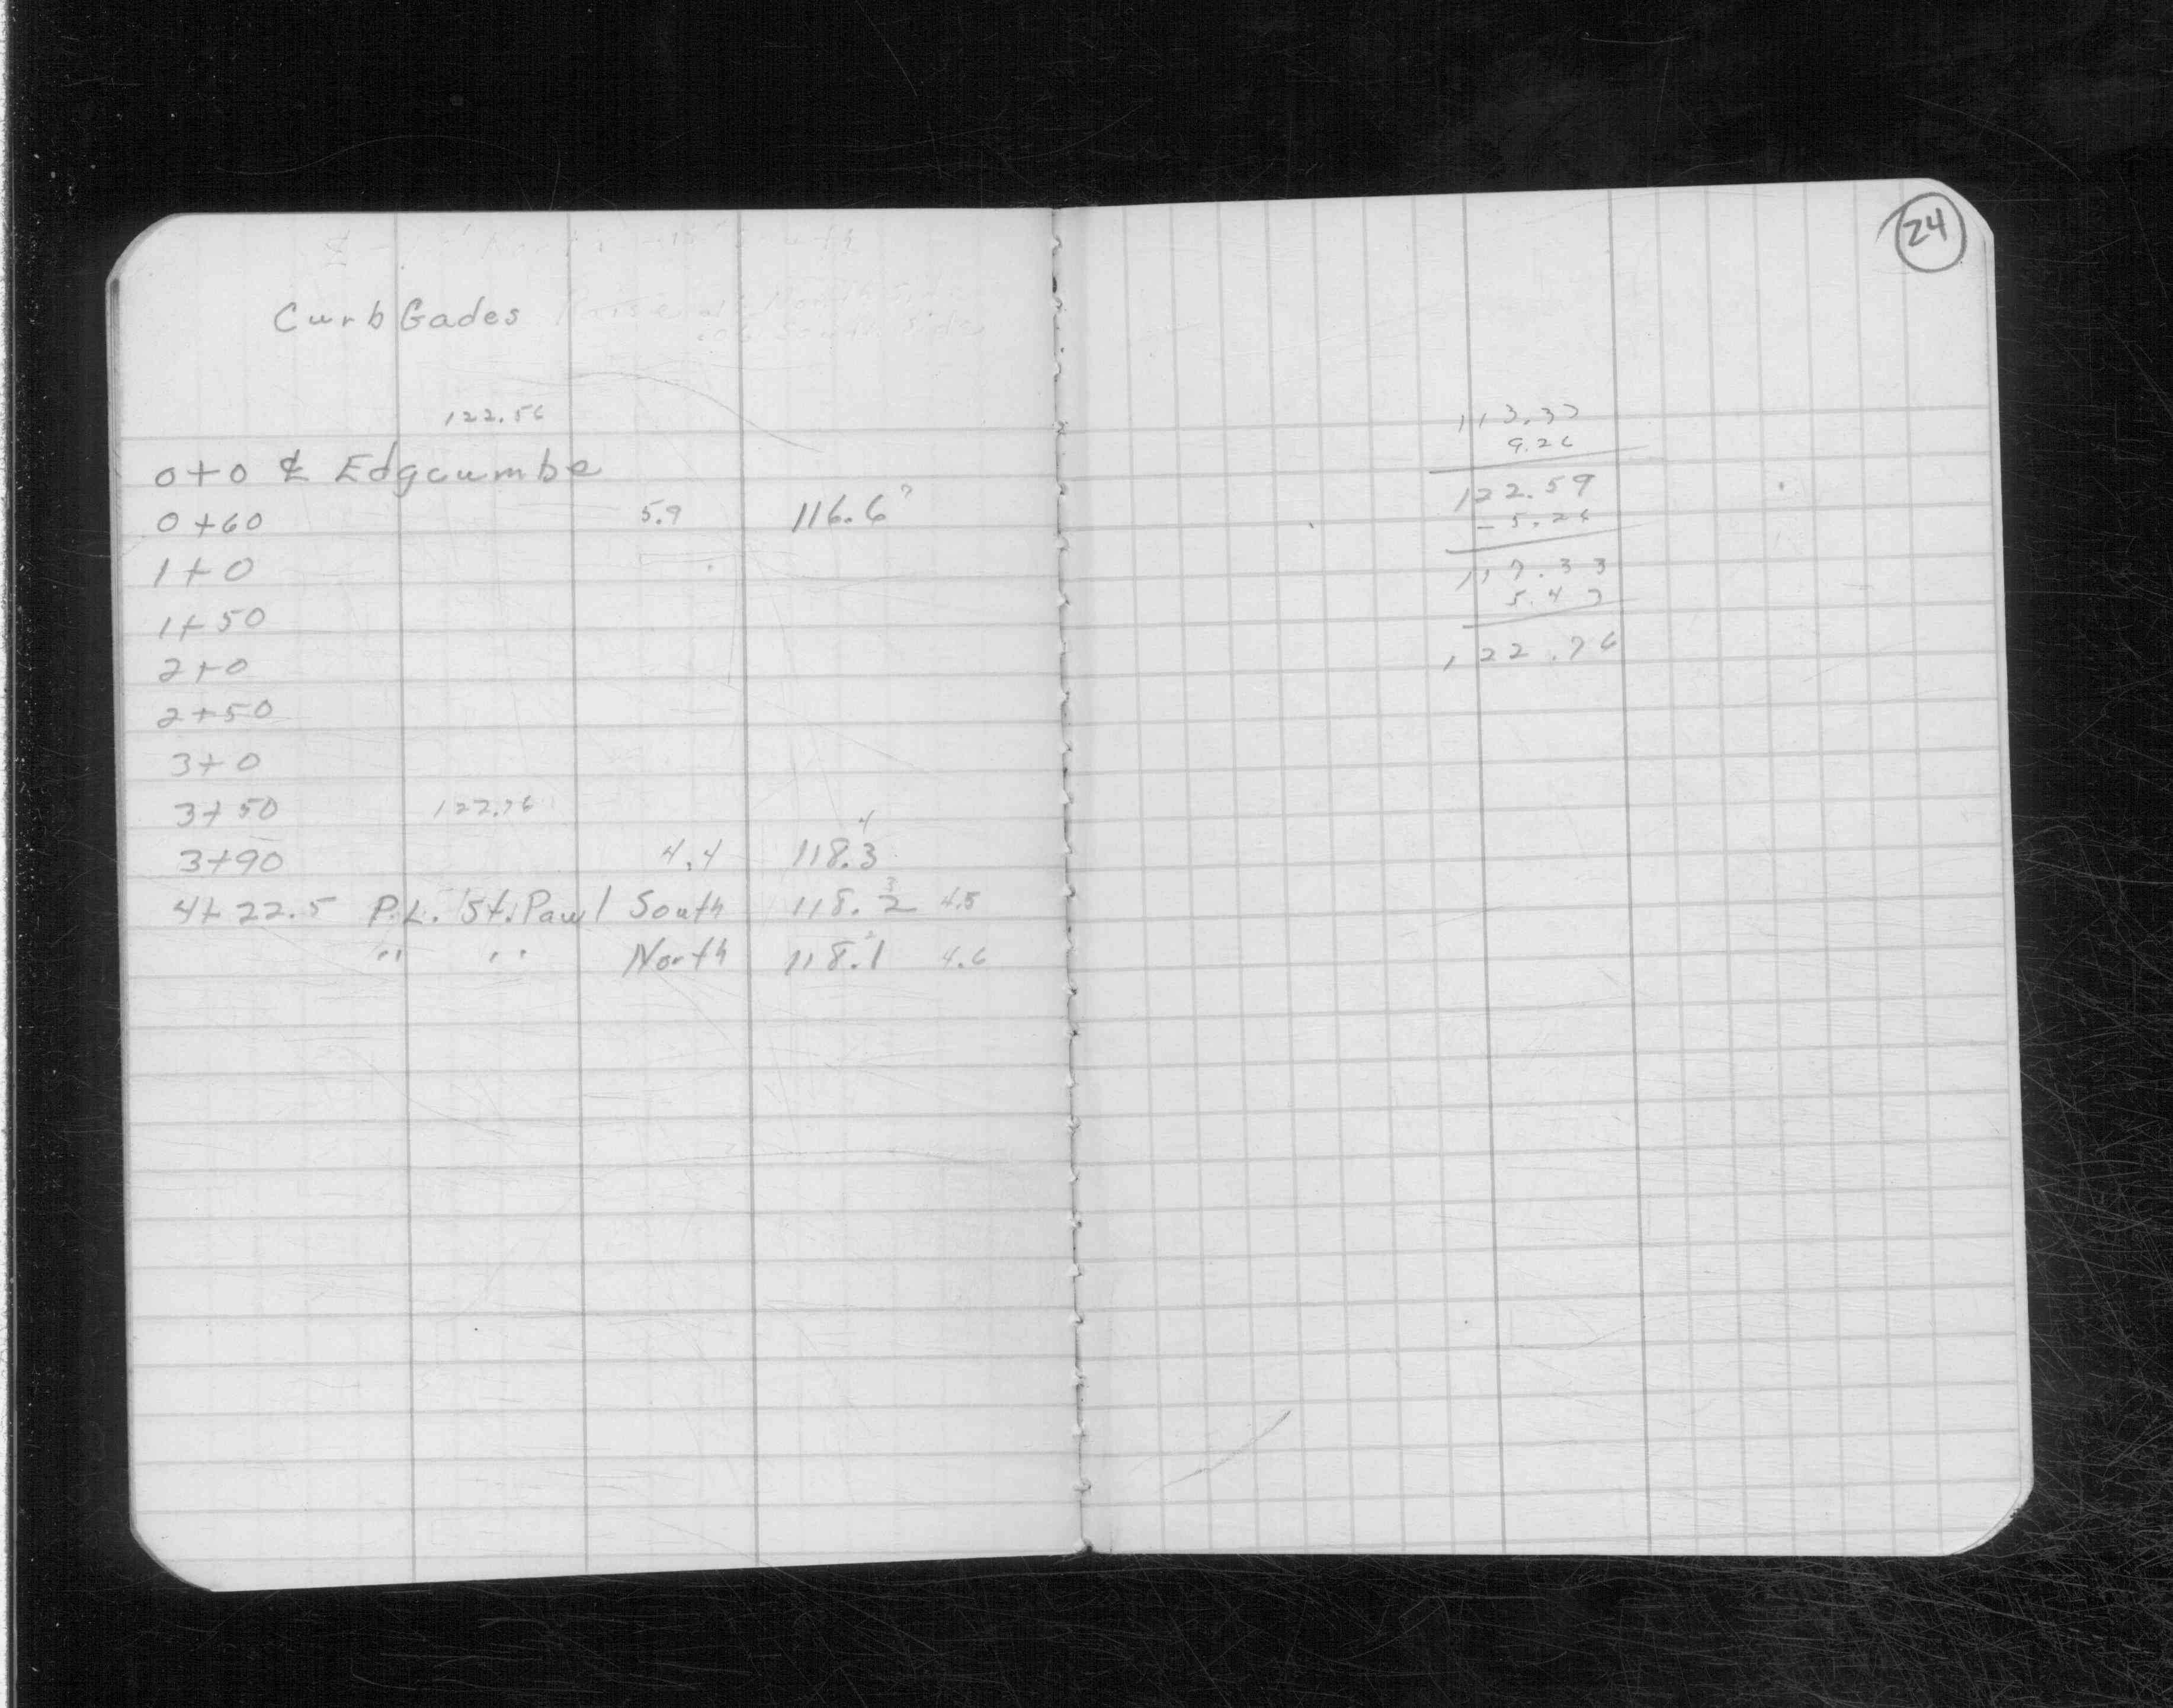 North South
Curb Gades Raise .01 North Side
.06 South Side
122.56
0+0 ℄ Edgcumbe
0+60 5.9 116.6 7
1+0
1+50
2+0
2+50
3+0
3+50 122.76
4
3+90 4.4 118.3
3
4+22.5 P.L. St. Paul South 118.2 4.5
2
" " North 118.1 4.6
24
113.33
9.26
122.59
-5.26
117.33
5.43
122.76